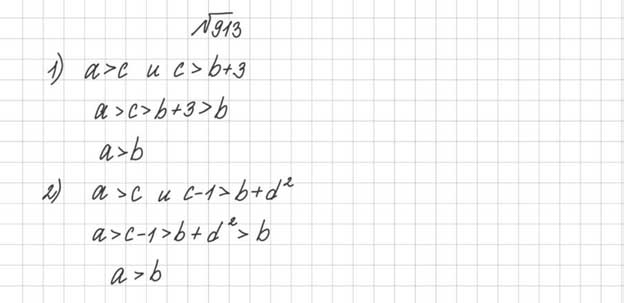 √913
1) a>c и c>b+3
a>c>b+3>b
a>b
2) a>c и c-1>b+d²
a>c-1>b+d²>b
a>b